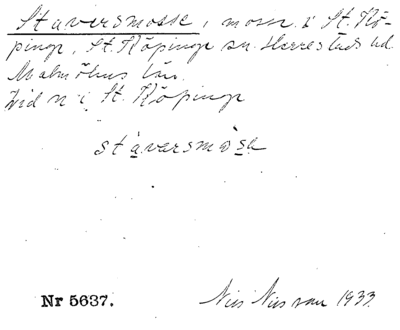 Staversmosse, mosse i St. Kö-
pinge, St. Köpinge sn. Herrestads hd.
Malmöhus län.
Vid n i St. Köpinge
stáversmòse
Nr 5637. Nils Nilsson 1933.